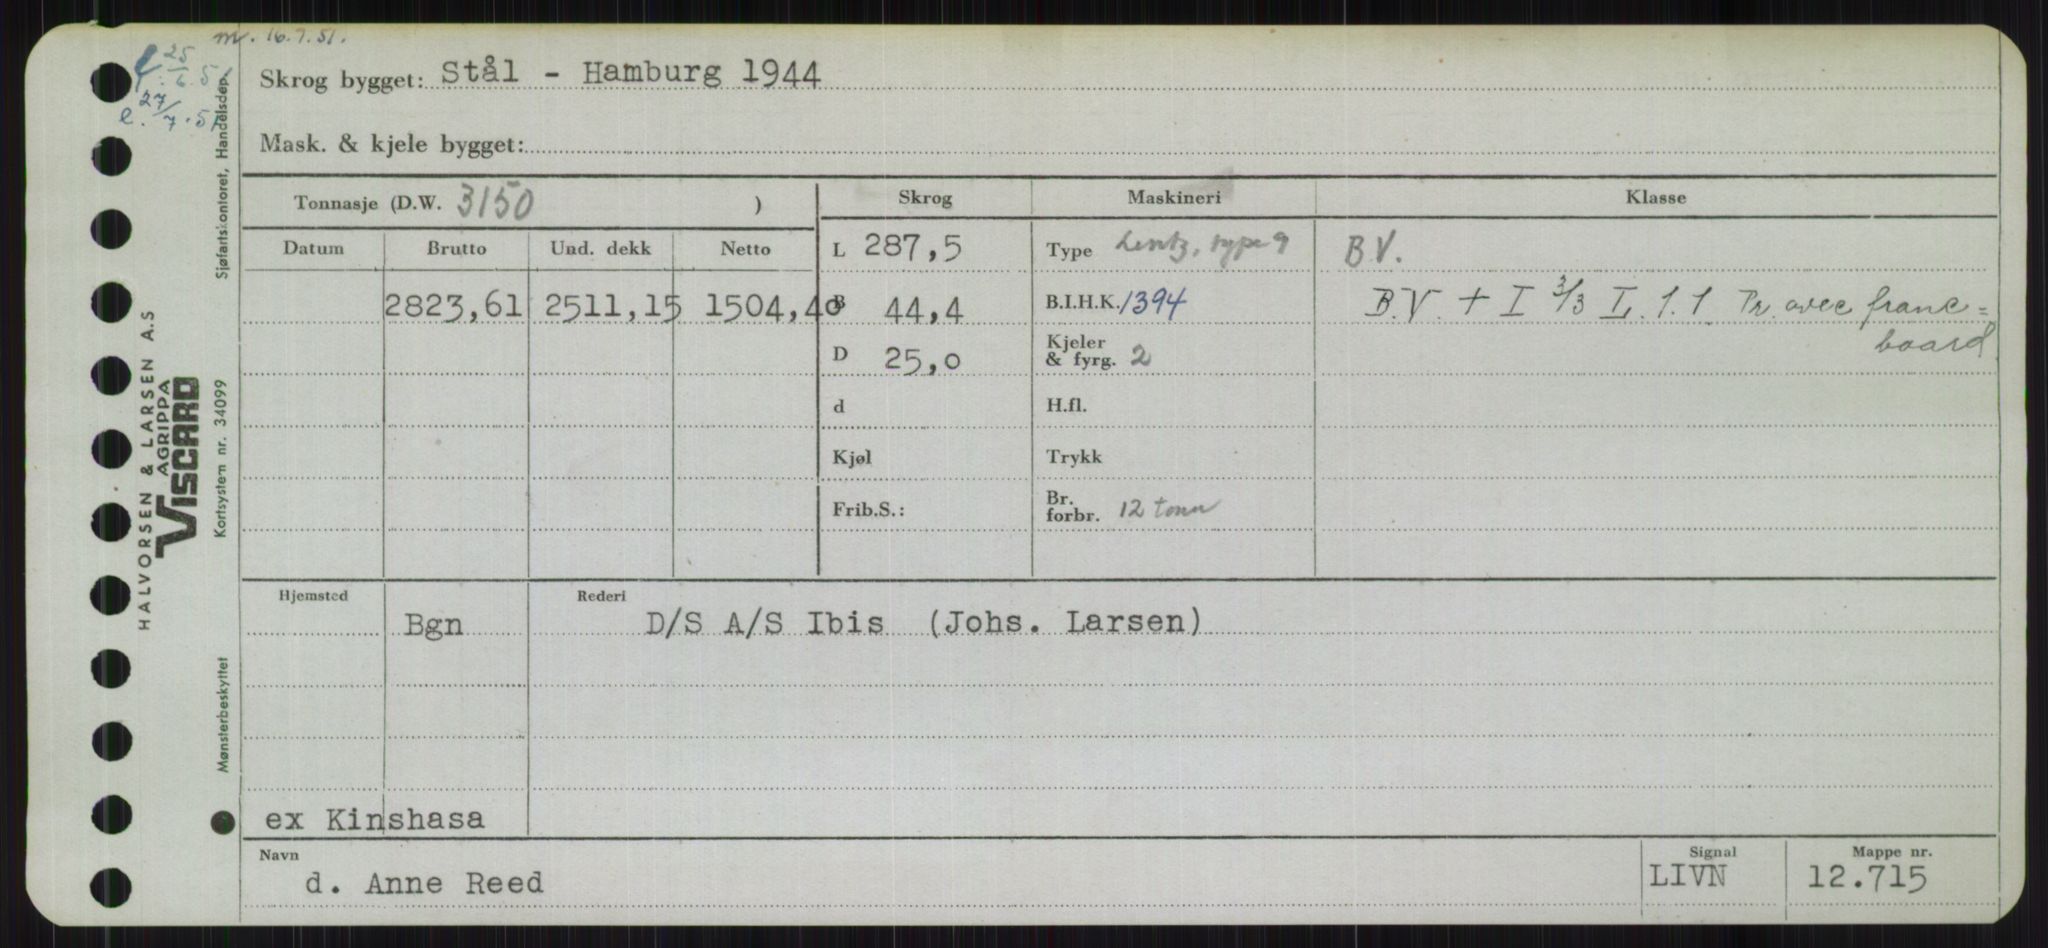 m. 16.7.51.
25/6.51
e. 27/7.51
Skrog bygget: Stål - Hamburg 1944
Mask. & kjele bygget:
Tonnasje (D.W. 3150 )
Skrog Maskineri Klasse
Datum Brutto Und. dekk Netto
L 287,5 Type Lentz, type 9 B V.
2823,61 2511,15 1504,40 B 44,4 B.I.H.K. 1394 B.V. + I 3/3 L. 1.1 Pr. avec franc=
board
D 25,0 Kjeler & fyrg. 2
d H.fl.
Kjøl Trykk
Frib.S.: Br. forbr. 12 tonn
Hjemsted Rederi
Bgn D/S A/S Ibis (Johs. Larsen)
ex Kinshasa
Navn Signal Mappe nr.
d. Anne Reed LIVN 12.715
HALVORSEN & LARSEN A.S
AGRIPPA
VISCARD
Mønsterbeskyttet Kortsystem nr. 34099 Sjøfartskontoret, Handelsdep.